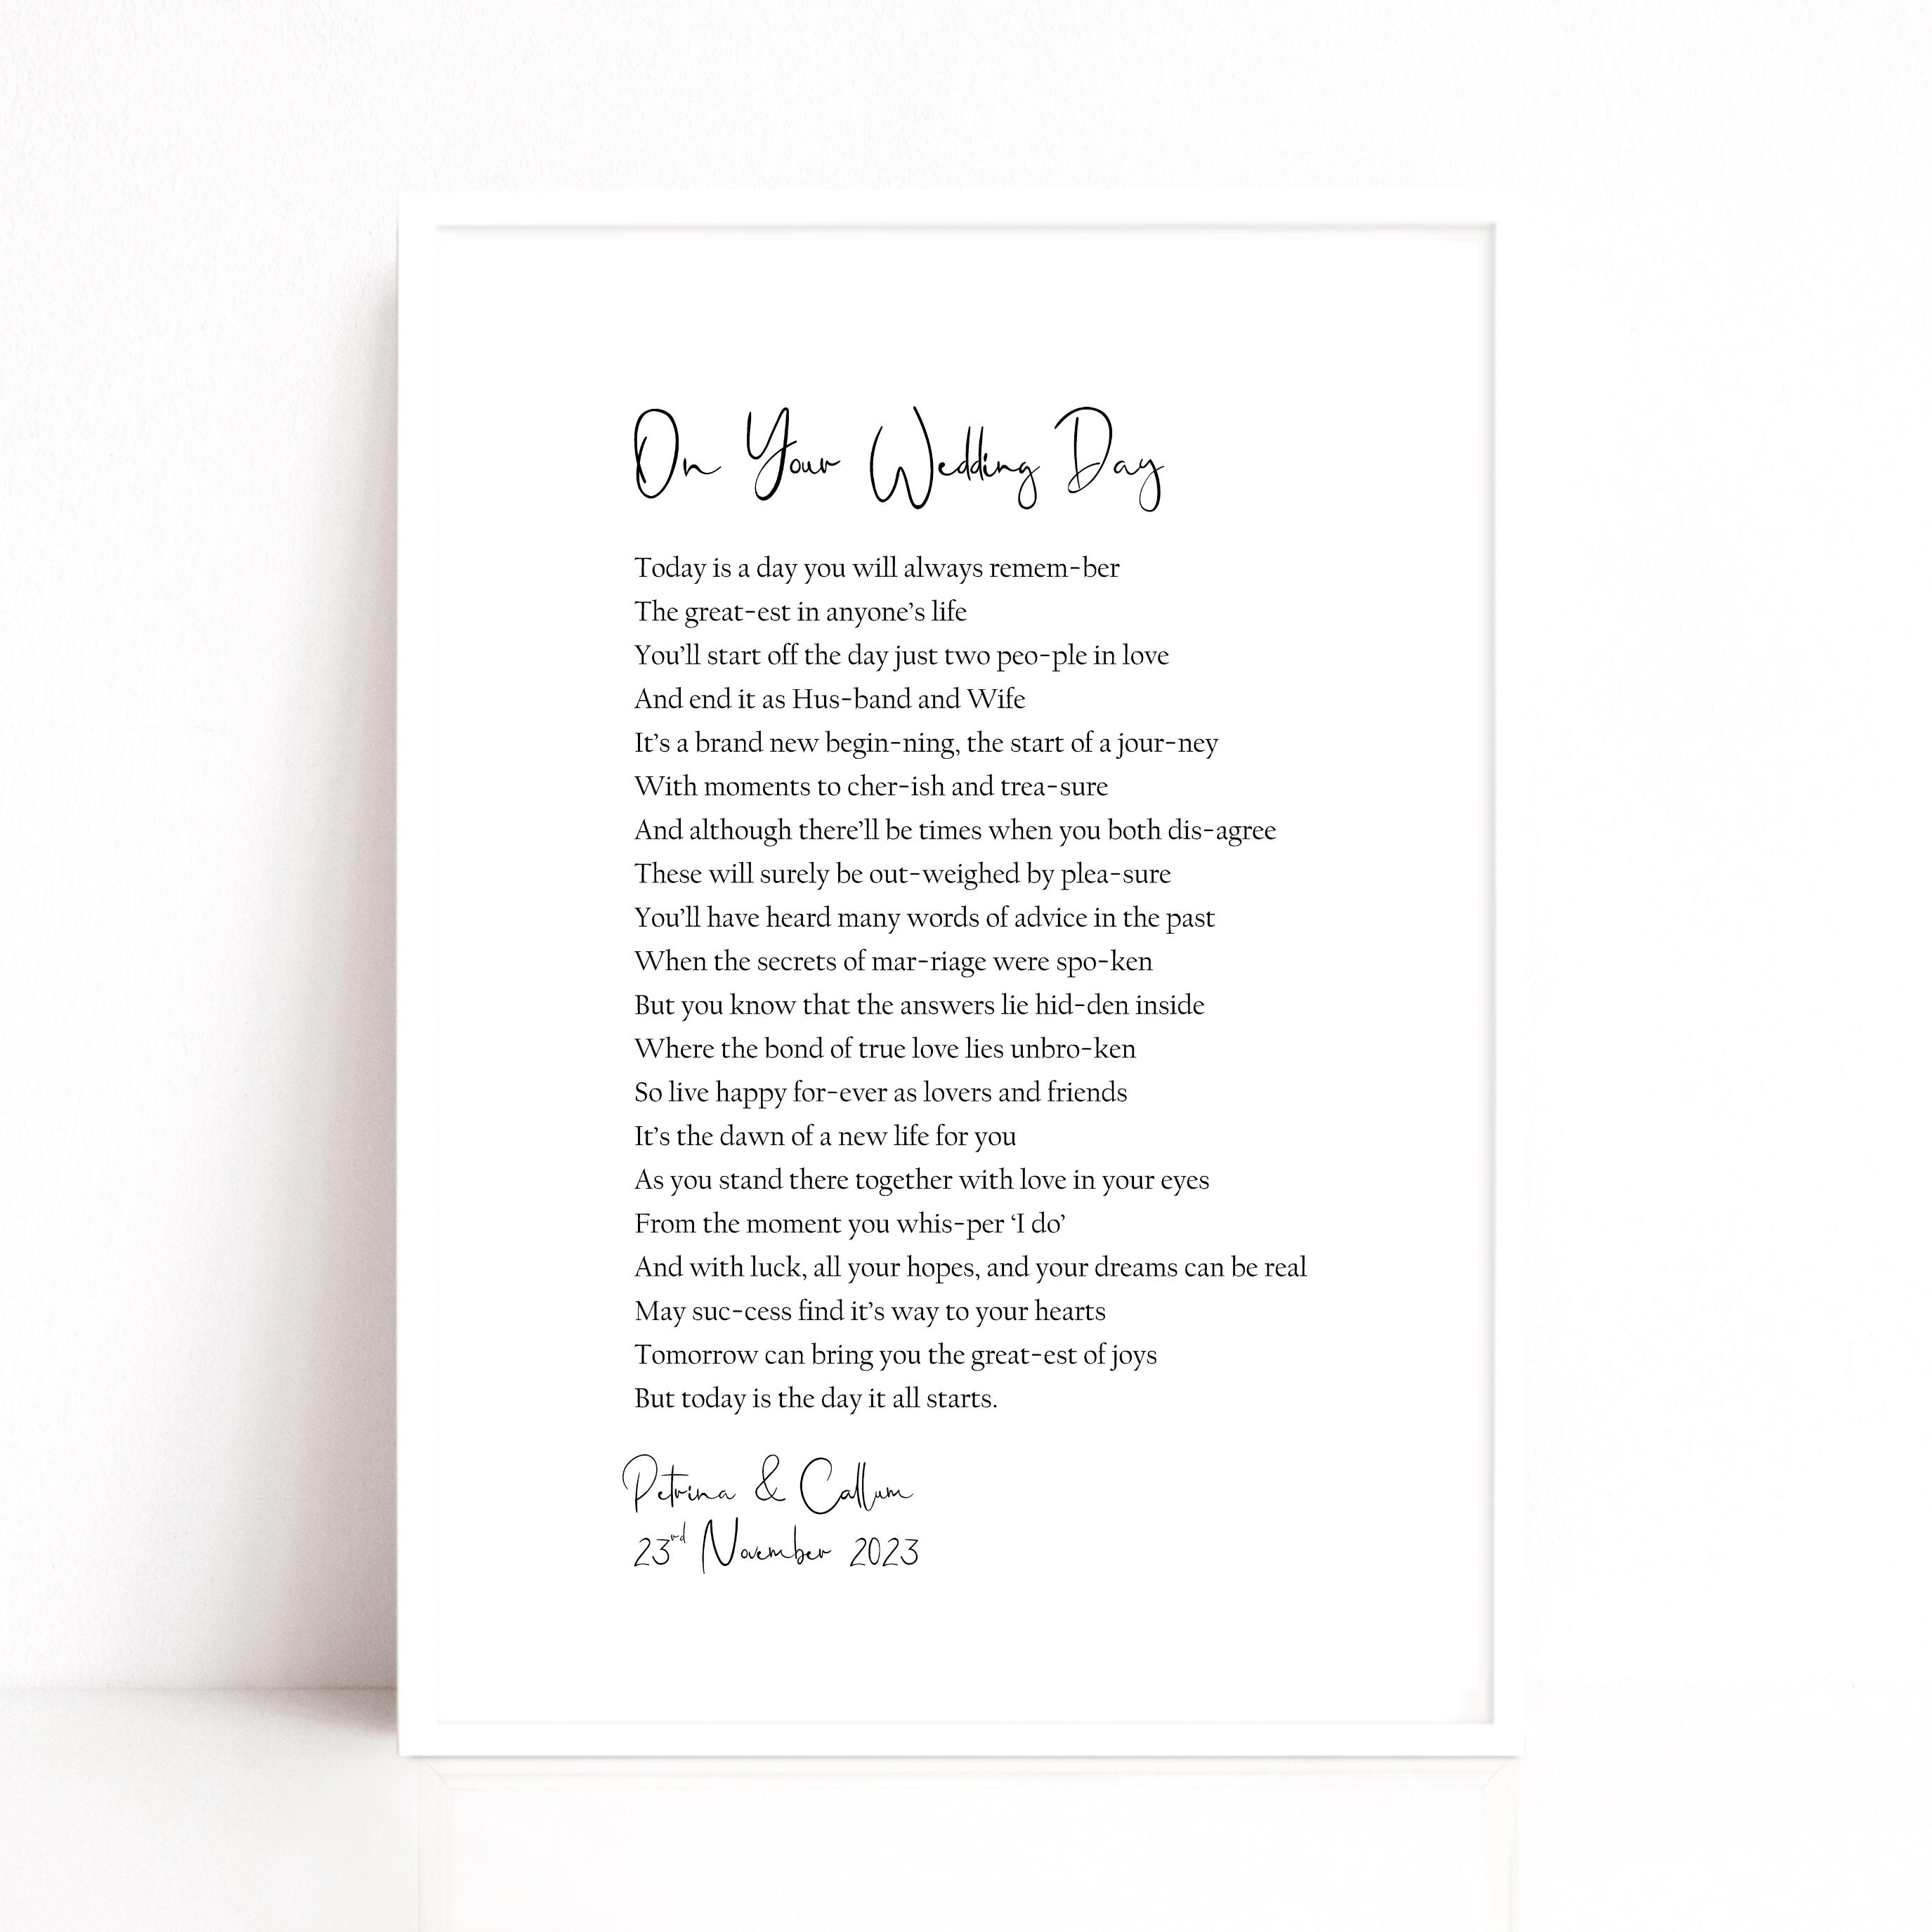 On Your Wedding Day
Today is a day you will always remem-ber
The great-est in anyone’s life
You’ll start off the day just two peo-ple in love
And end it as Hus-band and Wife
It’s a brand new begin-ning, the start of a jour-ney
With moments to cher-ish and trea-sure
And although there’ll be times when you both dis-agree
These will surely be out-weighed by plea-sure
You’ll have heard many words of advice in the past
When the secrets of mar-riage were spo-ken
But you know that the answers lie hid-den inside
Where the bond of true love lies unbro-ken
So live happy for-ever as lovers and friends
It’s the dawn of a new life for you
As you stand there together with love in your eyes
From the moment you whis-per ‘I do’
And with luck, all your hopes, and your dreams can be real
May suc-cess find it’s way to your hearts
Tomorrow can bring you the great-est of joys
But today is the day it all starts.
Petrina & Callum
23rd November 2023